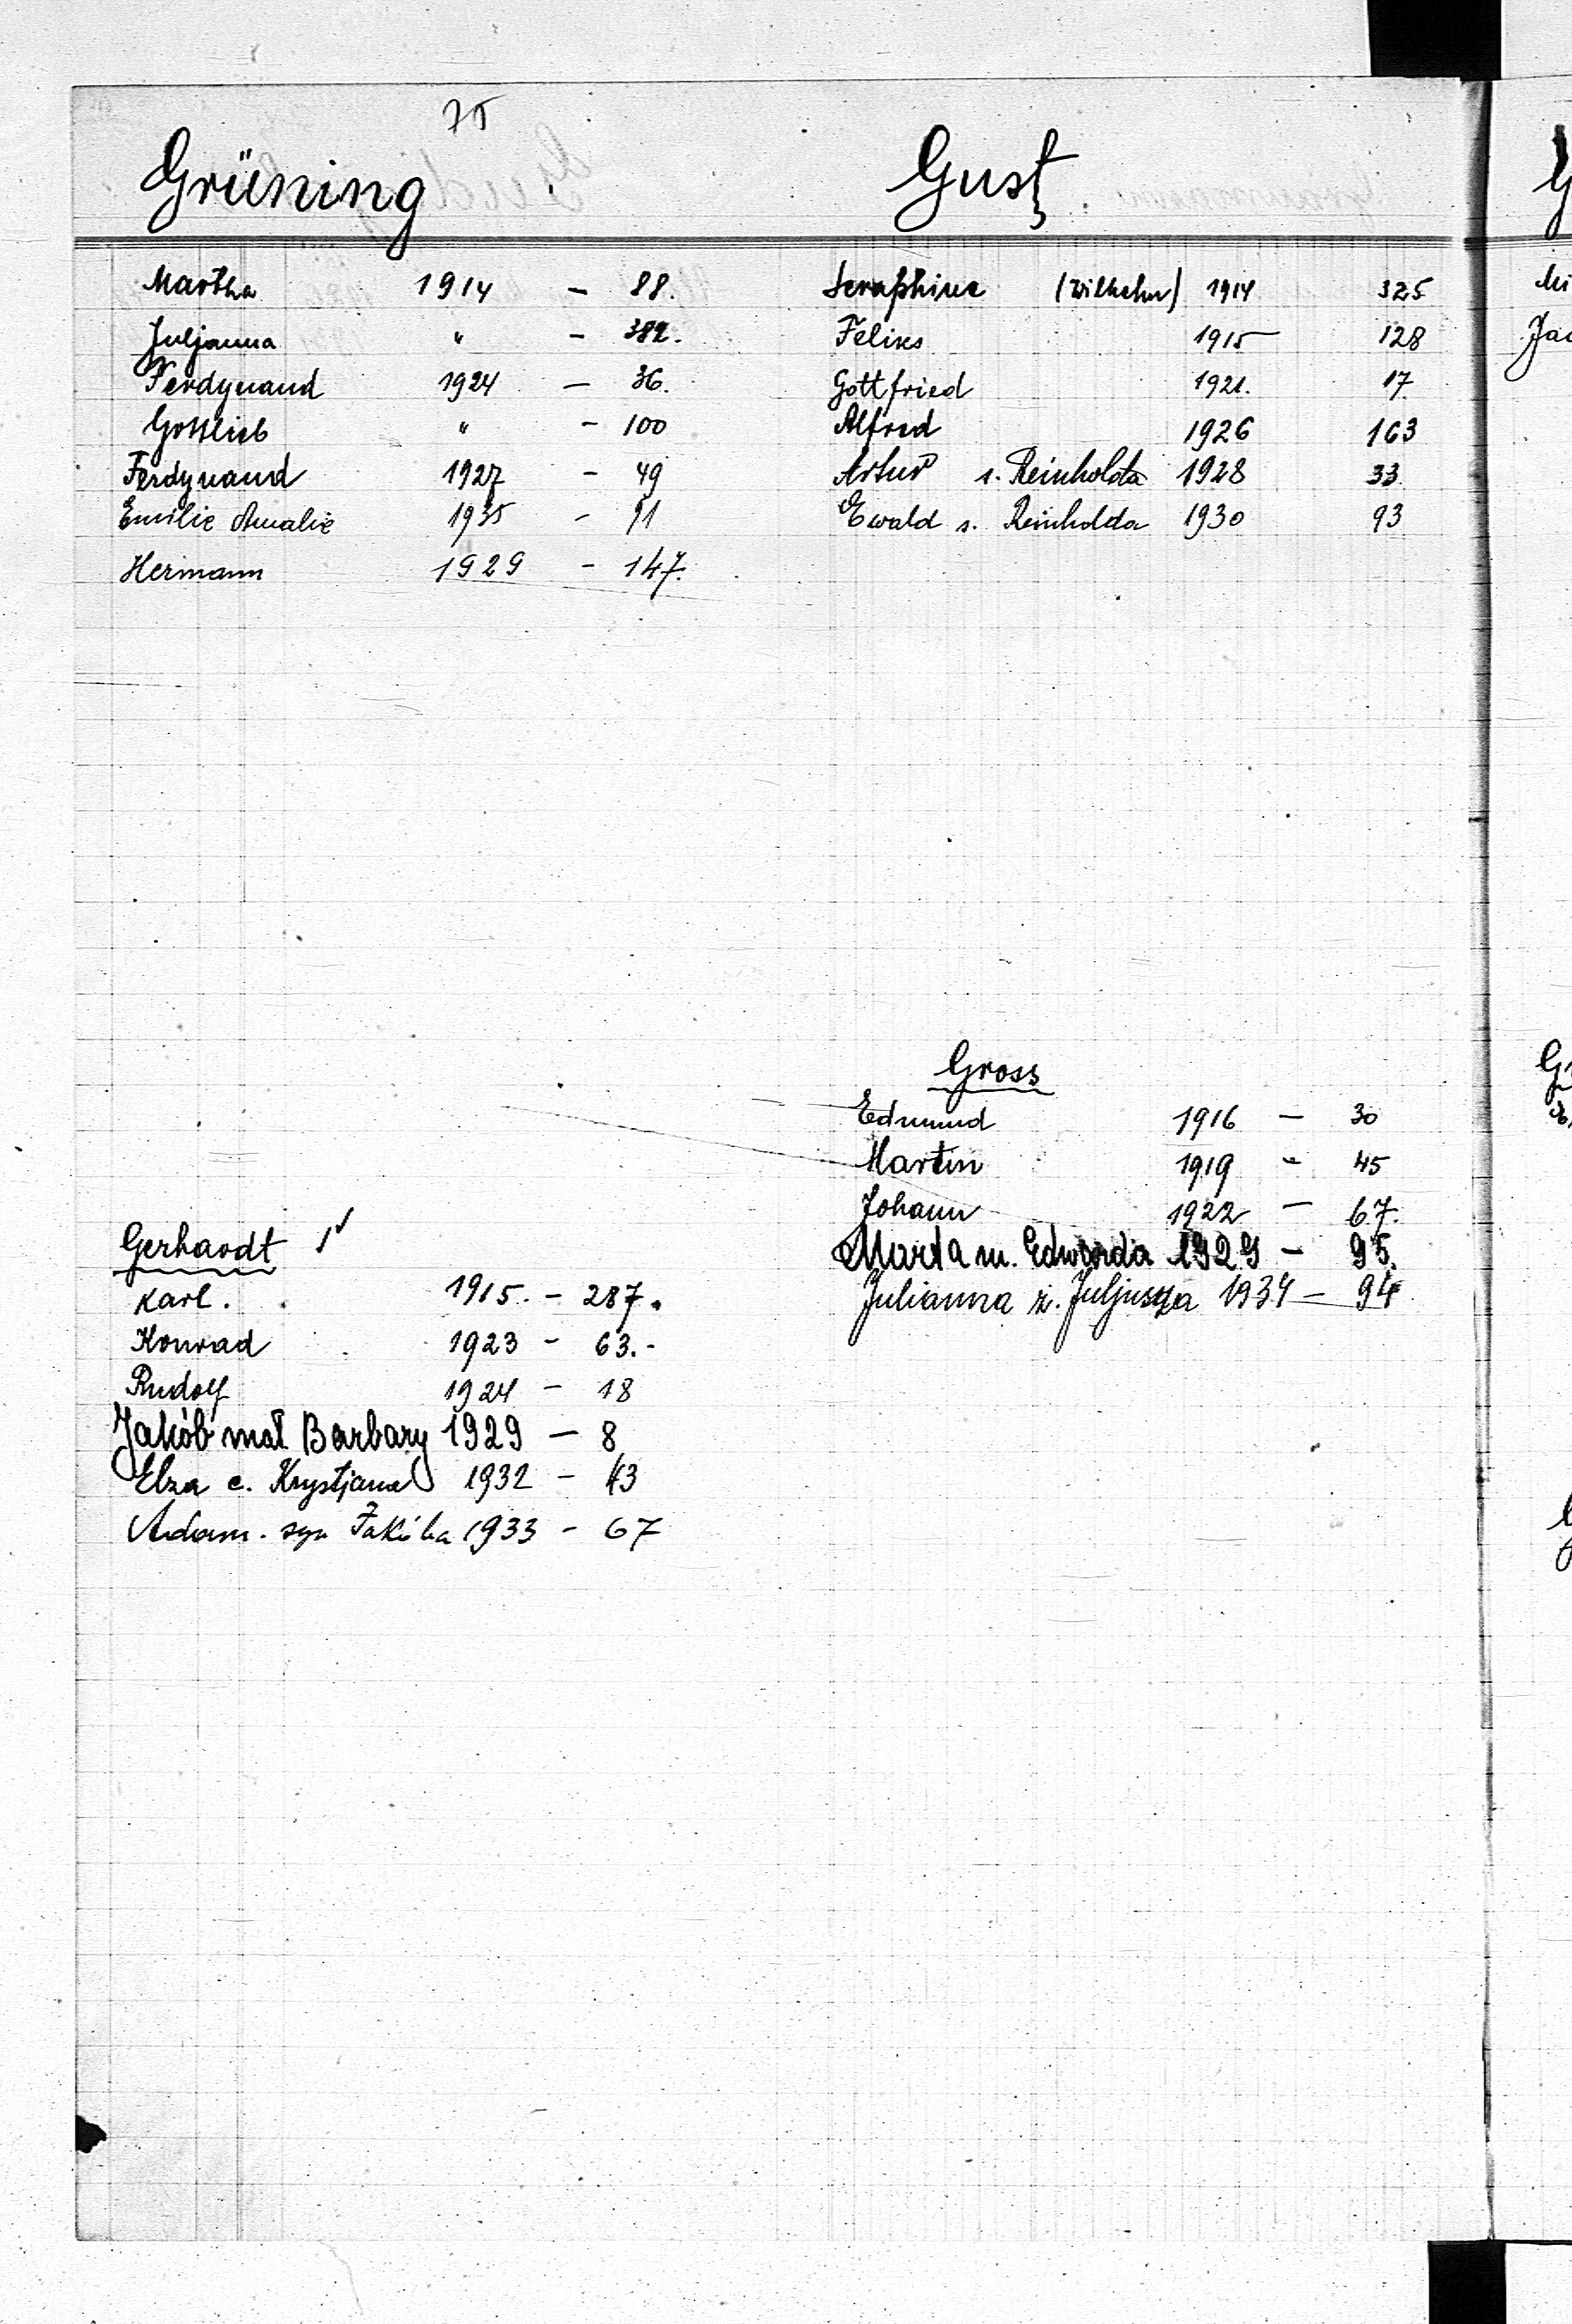 75
Grüning
Martha 1914 - 88.
Juljanna " - 382.
Ferdynand 1924 - 36.
Gottlieb " - 100
Ferdynand 1927 - 49
Emilie Amalie 1935 - 91
Hermann 1929 - 147.
Gerhardt
Karl. 1915. - 287.
Konrad 1923 - 63.-
Rudolf 1924 - 18
Jakób mał Barbary 1929 - 8
Elza c. Krystjana 1932 - 43
Adam. syn Jakóba 1933 - 67
Gust
Seraphine (Wilhelm) 1914 325
Feliks 1915 128
Gottfried 1921. 17.
Alfred 1926 163
Artur s. Reinholda 1928 33.
Ewald s. Reinholda 1930 93
Gross
Edmund 1916 - 30
Martin 1919 - 45
Johann 1922 - 67.
Marta m. Edwarda 1929 - 95.
Julianna ż. Juljusza 1934 - 94